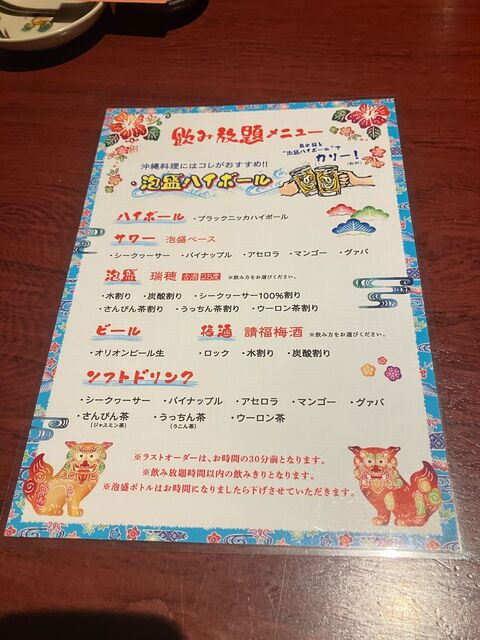 飲み放題メニュー
沖縄料理にはコレがおすすめ!!
・泡盛ハイボール
"泡盛ハイボール"で
カリー!
(乾杯)
ハイボール ・ブラックニッカハイボール
サワー 泡盛ベース
・シークヮーサー ・パイナップル ・アセロラ ・マンゴー ・グァバ
泡盛 瑞穂 古酒 25度 ※飲み方をお選びください。
・水割り ・炭酸割り ・シークヮーサー100%割り
・さんぴん茶割り ・うっちん茶割り ・ウーロン茶割り
ビール 梅酒 請福梅酒 ※飲み方をお選びください。
・オリオンビール生 ・ロック ・水割り ・炭酸割り
ソフトドリンク
・シークヮーサー ・パイナップル ・アセロラ ・マンゴー ・グァバ
・さんぴん茶 ・うっちん茶 ・ウーロン茶
(ジャスミン茶) (うこん茶)
※ラストオーダーは、お時間の30分前となります。
※飲み放題時間以内の飲みきりとなります。
※泡盛ボトルはお時間になりましたら下げさせていただきます。